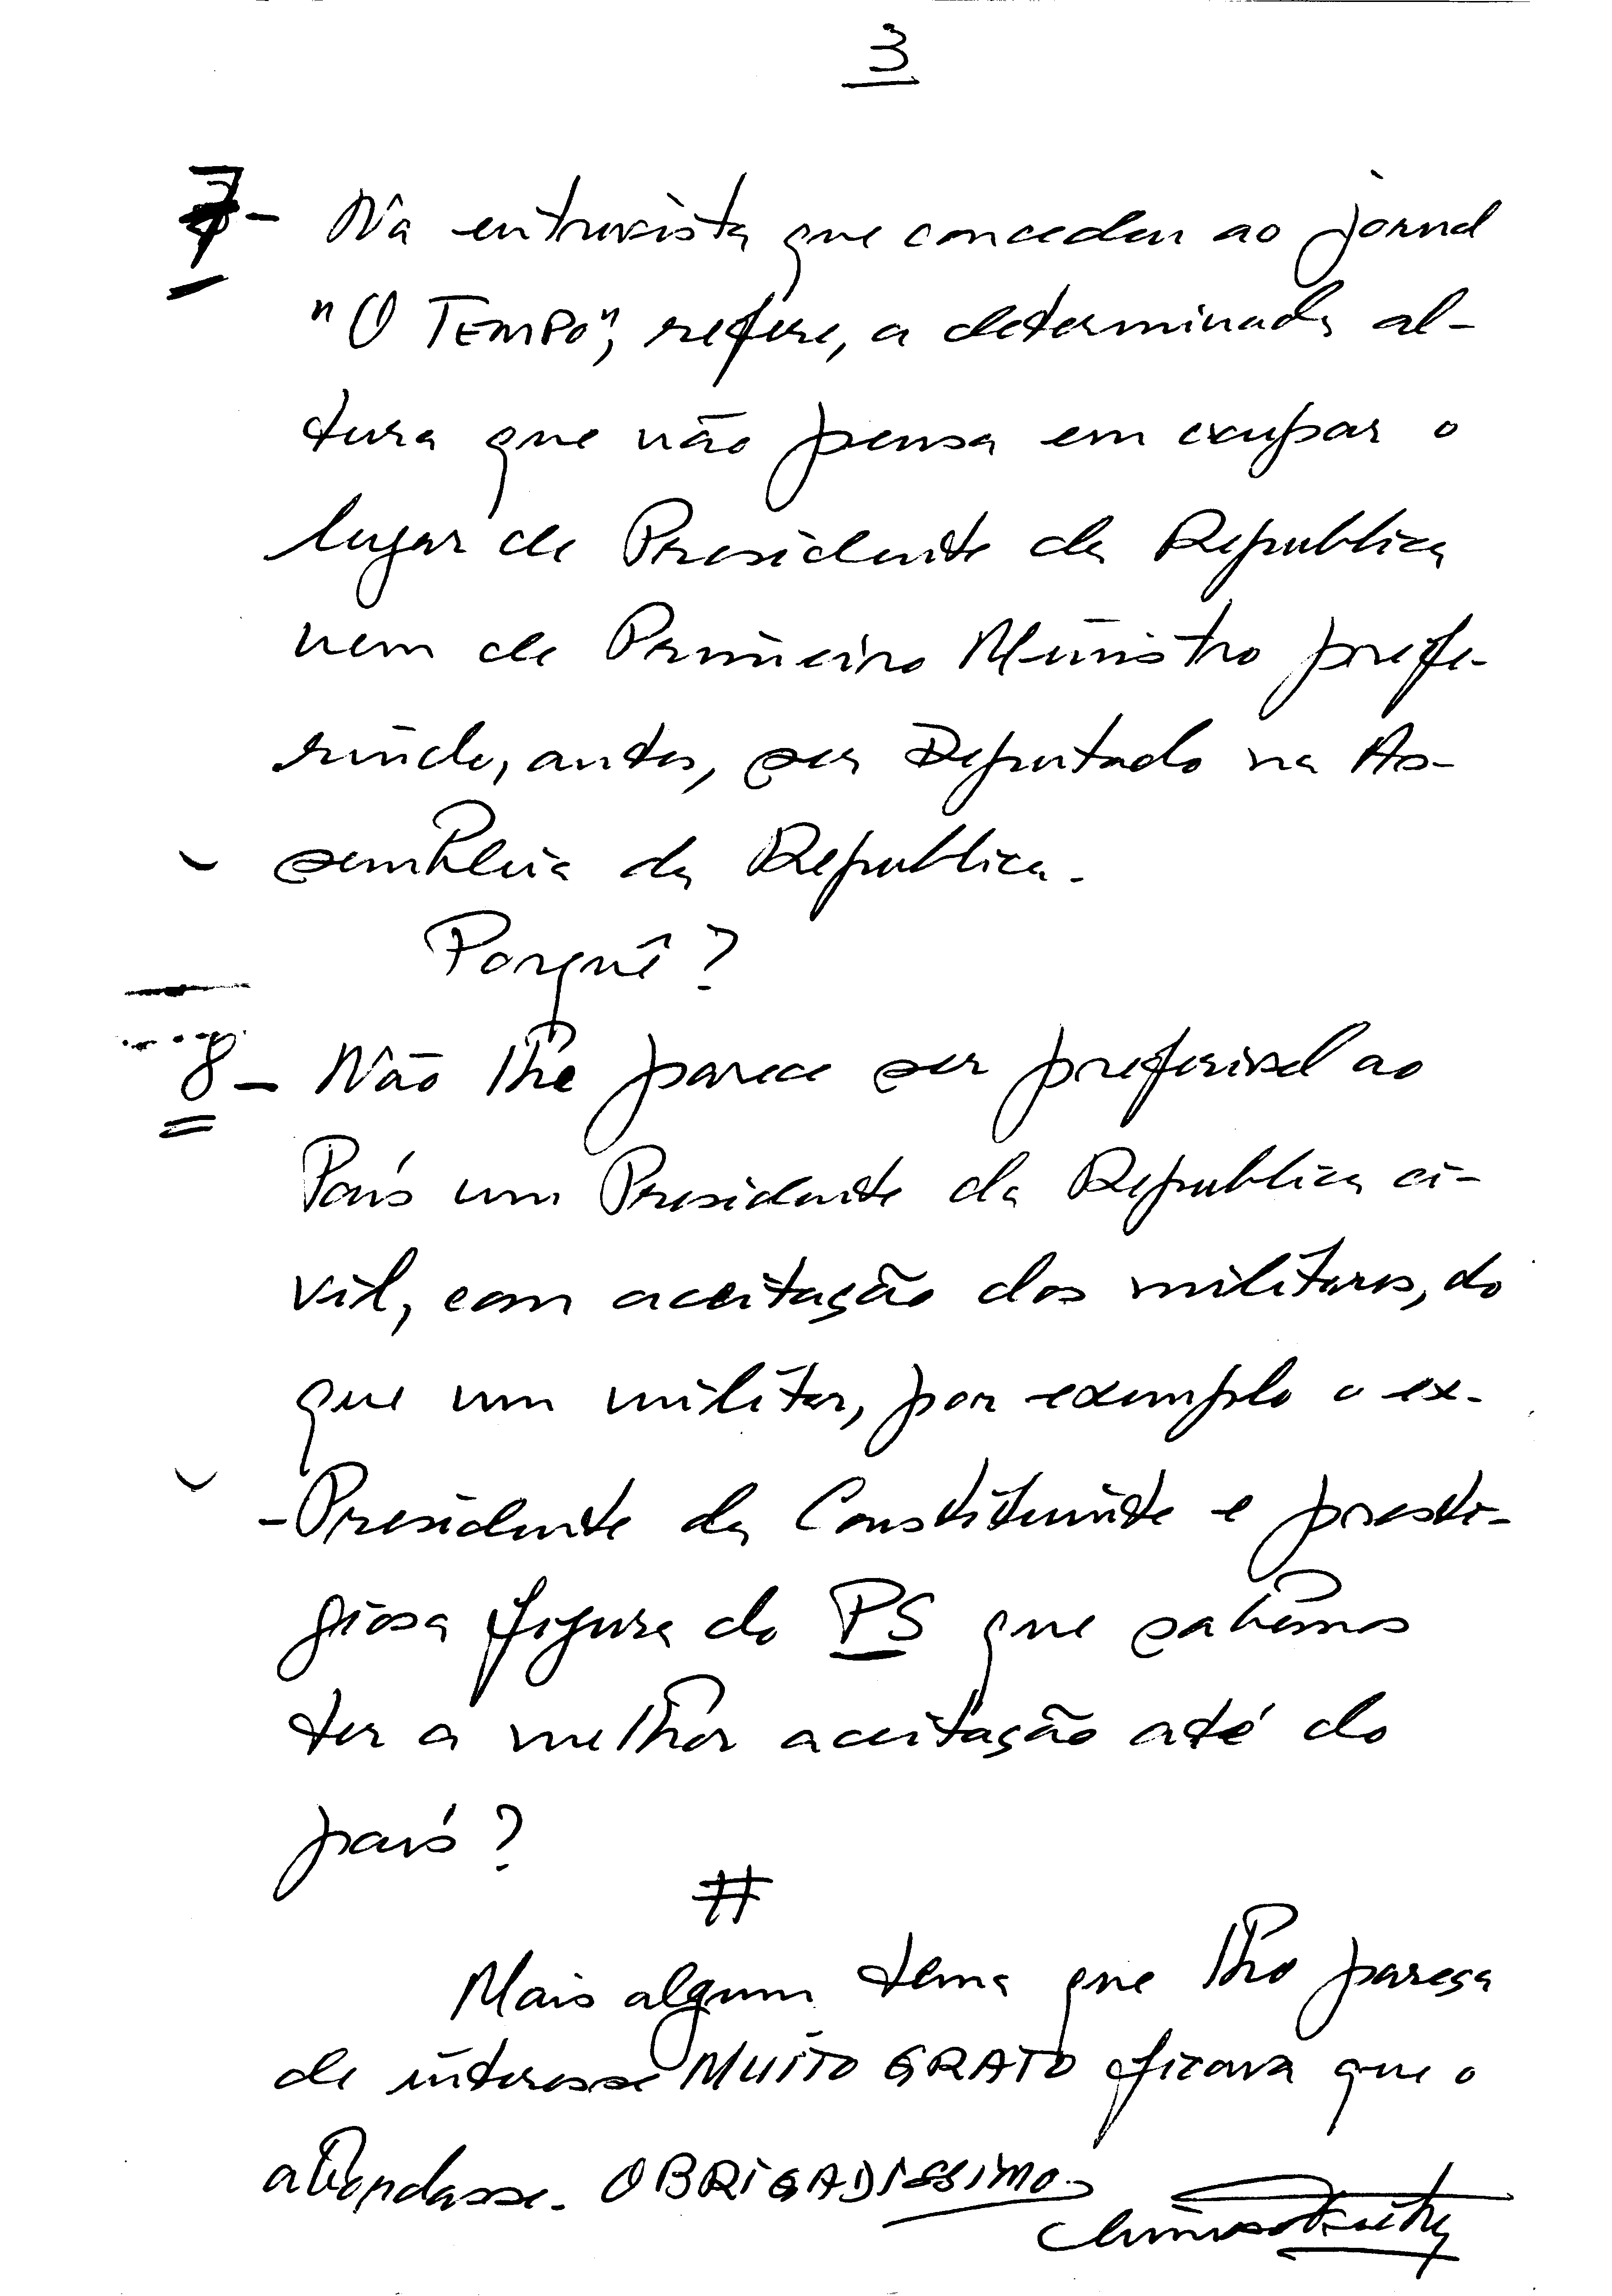 3
7- Na entrevista que concedeu ao jornal
"O TEMPO", refere, a determinada al-
tura que não pensa em ocupar o
lugar de Presidente da Republica
nem de Primeiro Ministro prefe-
rindo, antes, ser Deputado na As-
sembleia da Republica.
Porquê?
8- Não lhe parece ser preferivel ao
País um Presidente da Republica ci-
vil, com aceitação dos militares, do
que um militar, por exemplo o ex-
-Presidente da Constituinte e presti-
giosa figura do PS que sabemos
ter a melhor aceitação até do
país?
#
Mais algum tema que lhe pareça
de interesse MUITO GRATO ficava que o
abordasse. OBRIGADISSIMO.